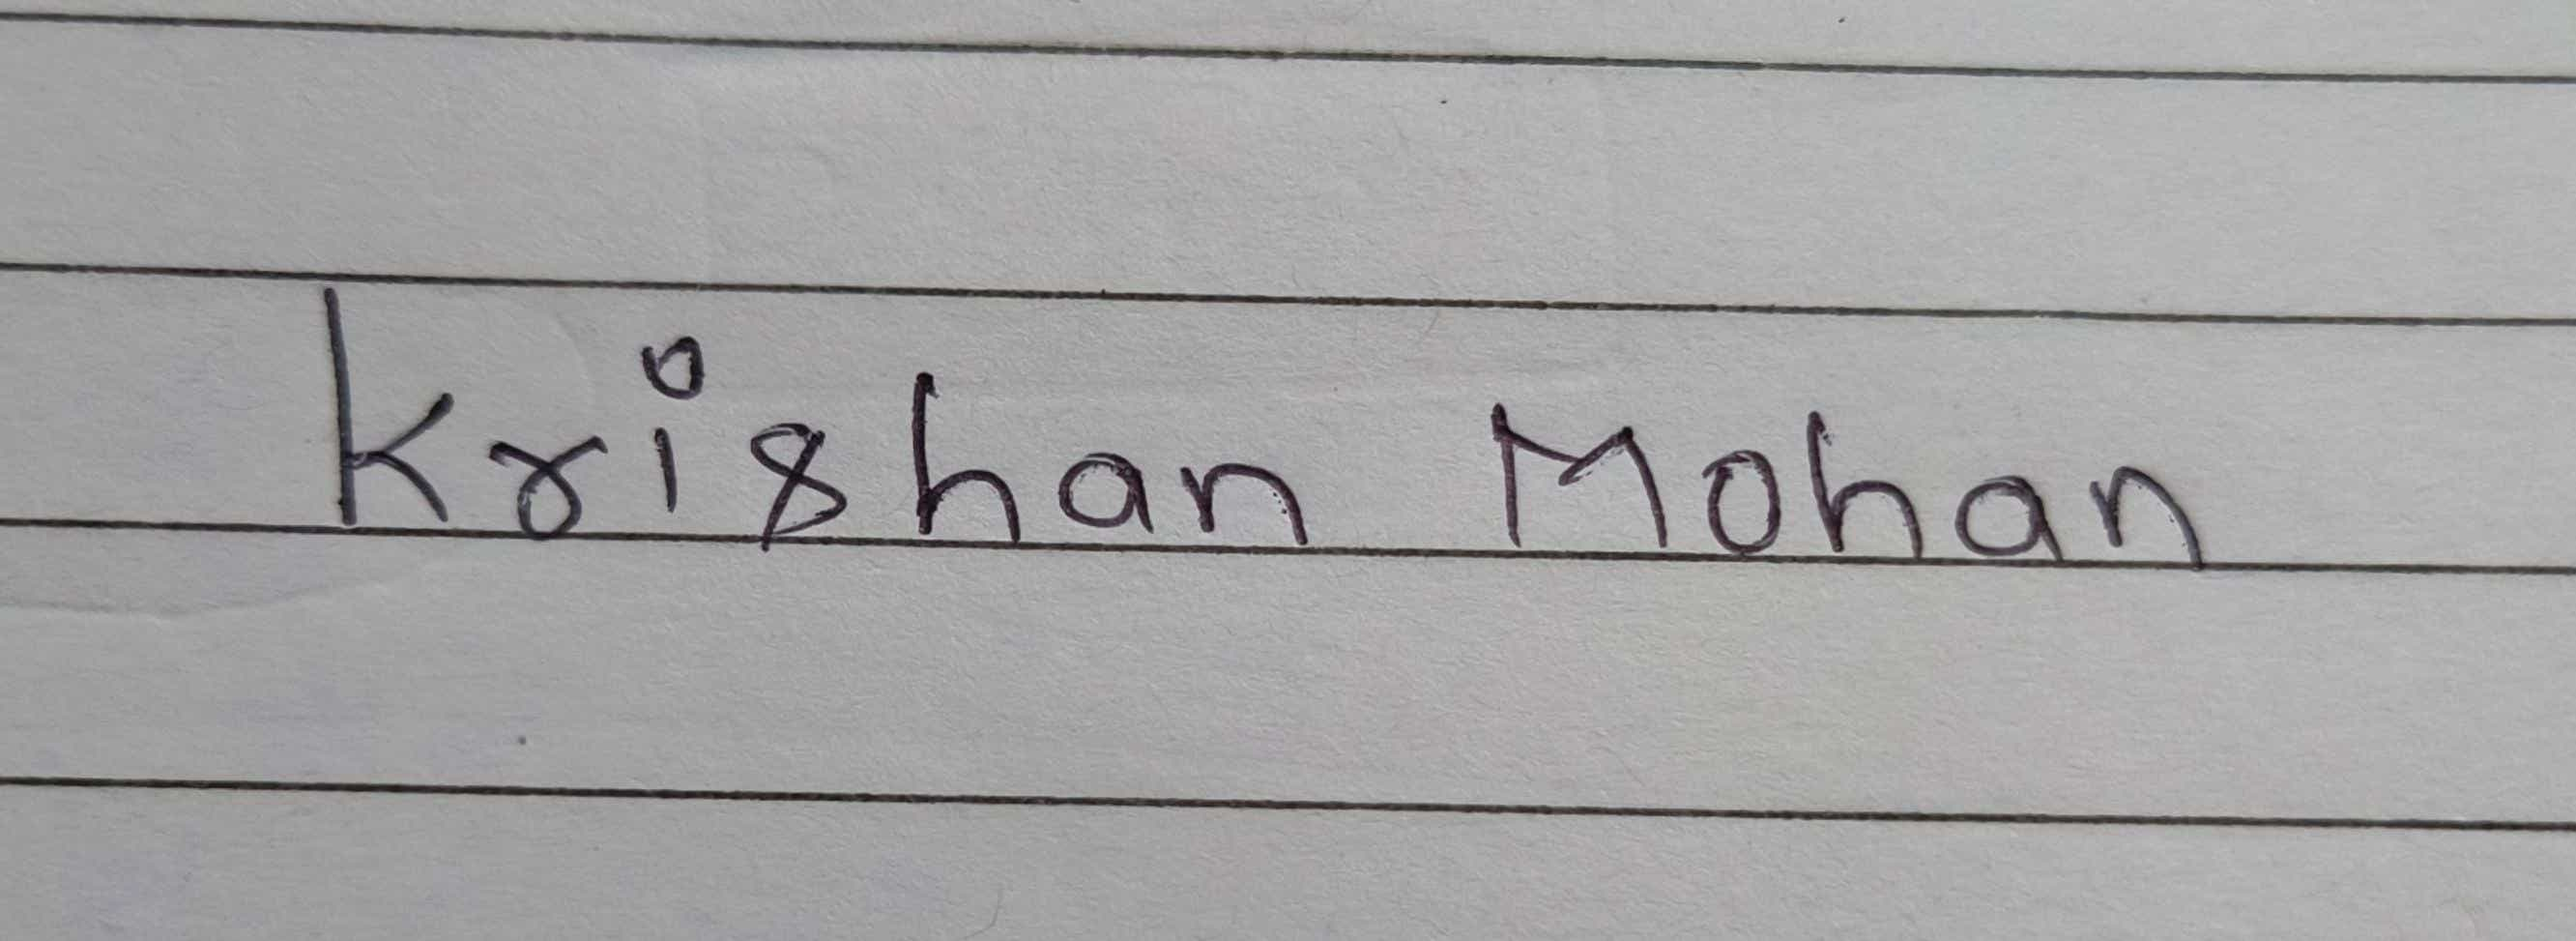 Krishan Mohan